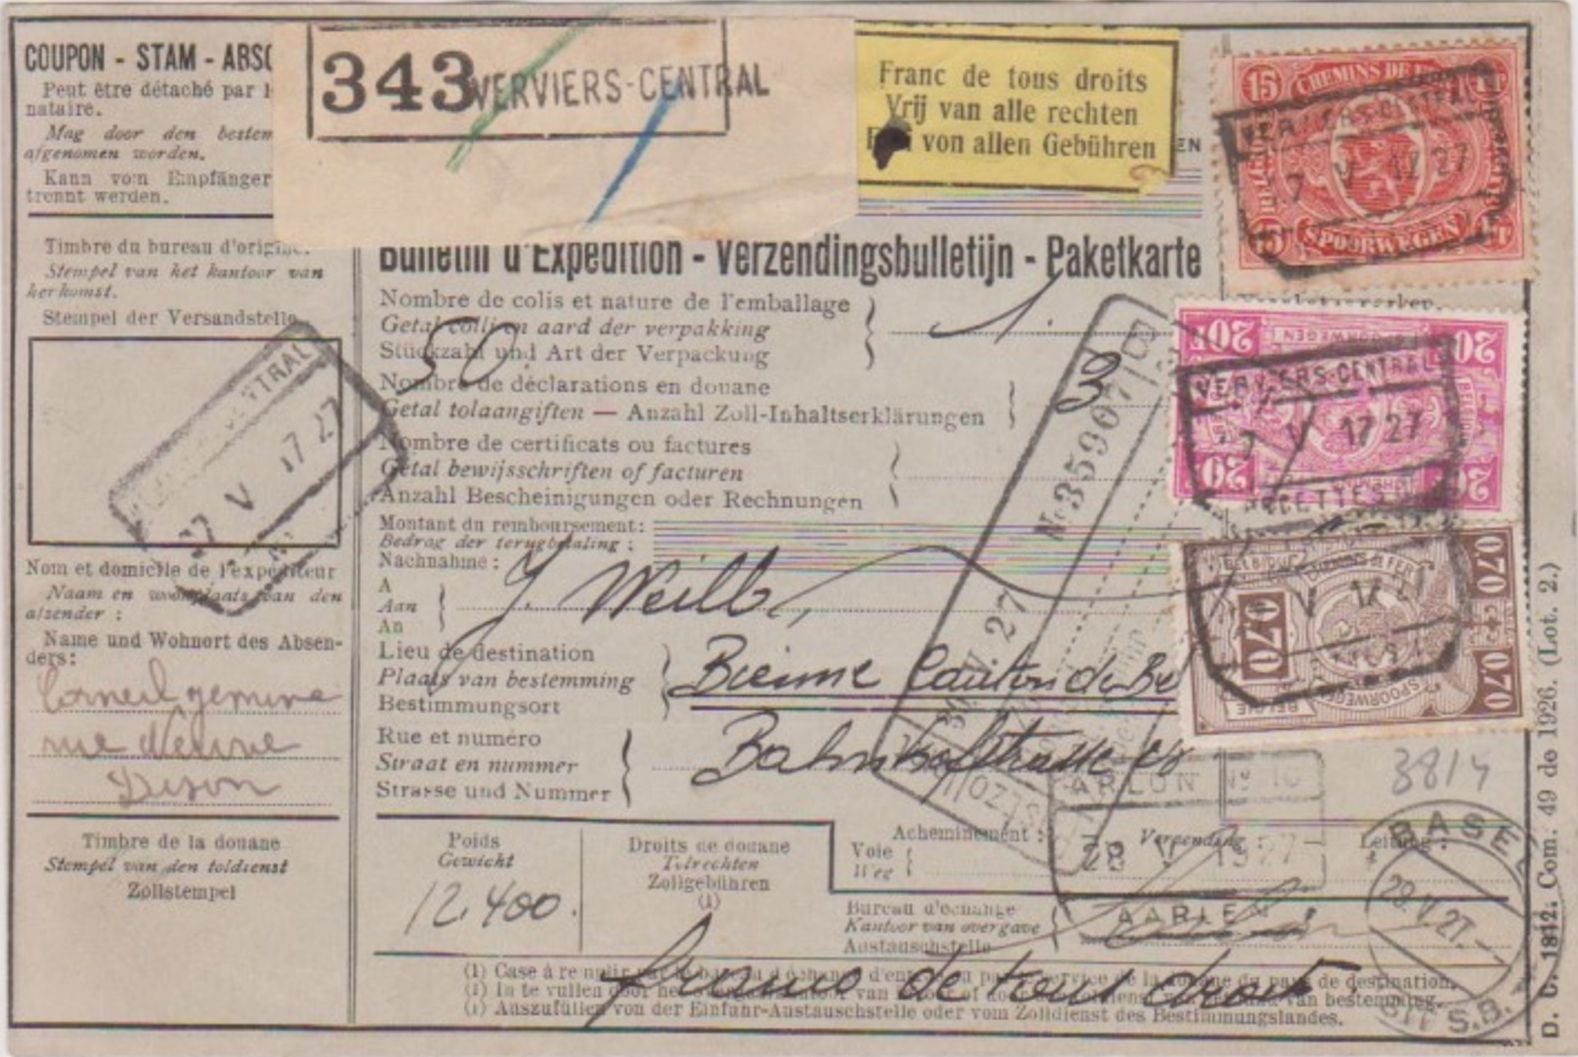 COUPON - STAM - ABSC
Peut être détaché par l
nataire.
Mag door den bestem
afgenomen worden.
Kann vom Empfänger
trennt werden.
343 VERVIERS-CENTRAL
Franc de tous droits
Vrij van alle rechten
von allen Gebühren
EN
15 CHEMINS DE
VERVIERS-CENTRAL
7 V 17 27
15 SPOORWEGEN
Timbre du bureau d'origine.
Stempel van het kantoor van
herkomst.
Stempel der Versandstelle
CENTRAL
27 V 17 27
Bulletin d'Expédition - Verzendingsbulletijn - Paketkarte
Nombre de colis et nature de l'emballage
Getal colli en aard der verpakking
Stückzahl und Art der Verpackung
1.
50
Nombre de déclarations en douane
Getal tolaangiften — Anzahl Zoll-Inhaltserklärungen
3
Nombre de certificats ou factures
Getal bewijsschriften of facturen
Anzahl Bescheinigungen oder Rechnungen
No 35907
30. V 27
20 SPOORWEGEN 20
VERVIERS-CENTRAL
7 V 17 27
20 RECETTES 20
Montant du remboursement:
Bedrag der terugbetaling:
Nachnahme:
A
Aan
An
J Weill,
BELGIQUE CHEMINS DE FER 0.70
V 17 27
0.70
BELGIE SPOORWEGEN 0.70
Nom et domicile de l'expéditeur
Naam en woonplaats van den
afzender:
Name und Wohnort des Absen-
ders:
Corneil gemine
rue Neuve
Dison
Lieu de destination
Plaats van bestemming
Bestimmungsort
Bienne Canton de Be
Rue et numéro
Straat en nummer
Strasse und Nummer
Bahnhofstrasse
3814
Timbre de la douane
Stempel van den toldienst
Zollstempel
Poids
Gewicht
12.400.
Droits de douane
Tolrechten
Zollgebühren
(1)
Acheminement: Verzending: Leitung:
Voie
Weg
Bureau d'échange
Kantoor van overgave
Austauschstelle
ARLON
28 V 1927
AARLEN
BASEL
28.V.27.
S.B.B.
franco de tous droits
(1) Case à remplir par le bureau d'échange d'entrée ou par le service de la douane du pays de destination.
(1) In te vullen door het van of door van bestemming.
(1) Auszufüllen von der Einfuhr-Austauschstelle oder vom Zolldienst des Bestimmungslandes.
D. C. 1812. Com. 49 de 1926. (Lot. 2.)